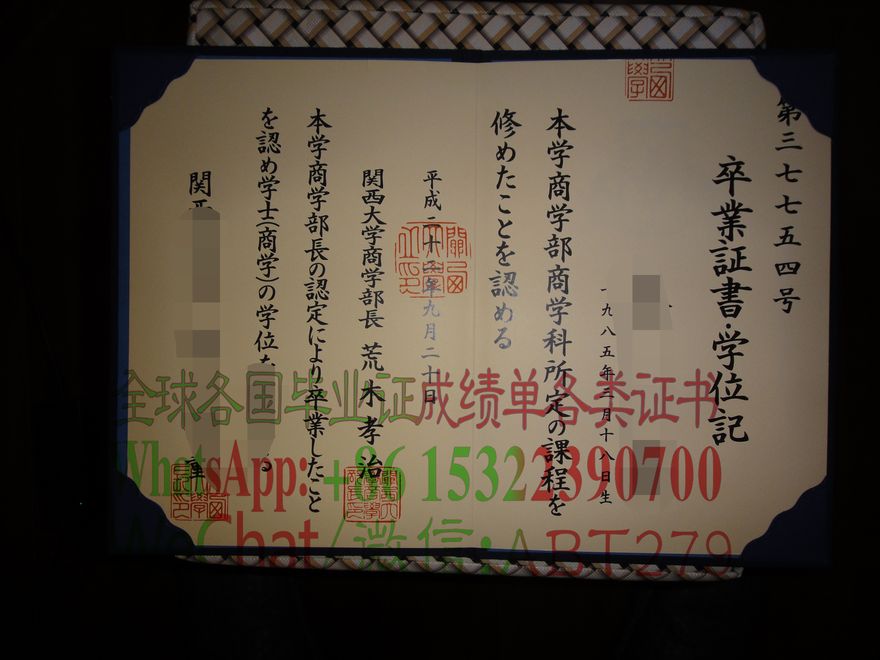 第三七七五四号
卒業証書・学位記
一九八五年三月十八日生
本学商学部商学科所定の課程を
修めたことを認める
平成二十四年九月二十日
関西大学商学部長 荒木孝治
本学商学部長の認定により卒業したこと
を認め学士(商学)の学位を
る
関西
全球各国毕业证成绩单各类证书
WhatsApp: +86 15322390700
WeChat/微信:ABT279